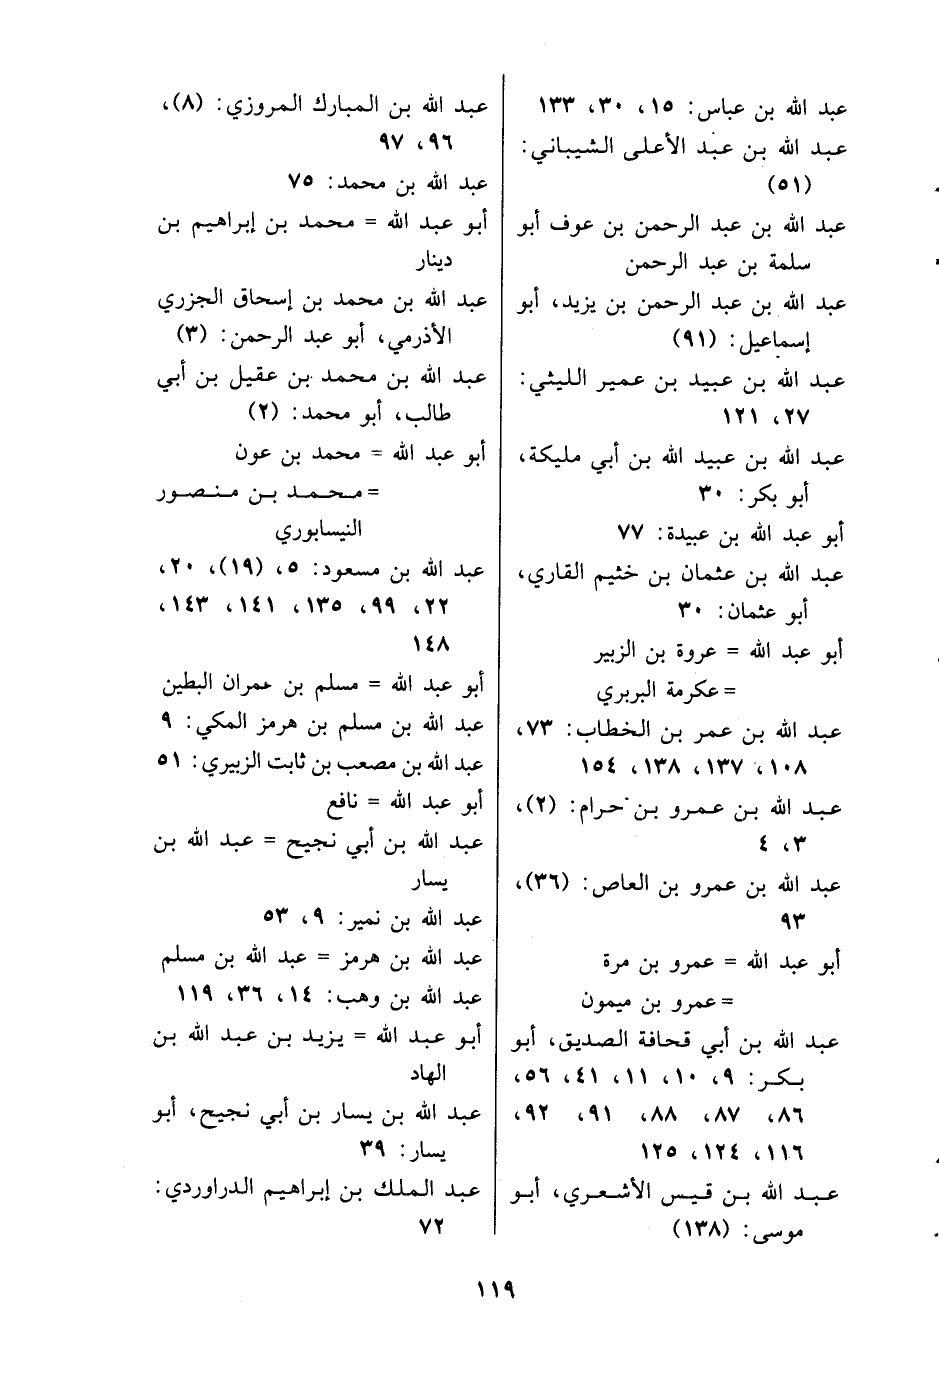 عبد الله بن عباس: ١٥، ٣٠، ١٣٣
عبد الله بن عبد الأعلى الشيباني:
(٥١)
عبد الله بن عبد الرحمن بن عوف أبو
سلمة بن عبد الرحمن
عبد الله بن عبد الرحمن بن يزيد، أبو
إسماعيل: (٩١)
عبد الله بن عبيد بن عمير الليثي:
٢٧، ١٢١
عبد الله بن عبيد الله بن أبي مليكة،
أبو بكر: ٣٠
أبو عبد الله بن عبيدة: ٧٧
عبد الله بن عثمان بن خثيم القاري،
أبو عثمان: ٣٠
أبو عبد الله = عروة بن الزبير
= عكرمة البربري
عبد الله بن عمر بن الخطاب: ٧٣،
١٠٨، ١٣٧، ١٣٨، ١٥٤
عبد الله بن عمرو بن حرام: (٢)،
٣، ٤
عبد الله بن عمرو بن العاص: (٣٦)،
٩٣
أبو عبد الله = عمرو بن مرة
= عمرو بن ميمون
عبد الله بن أبي قحافة الصديق، أبو
بكر: ٩، ١٠، ١١، ٤١، ٥٦،
٨٦، ٨٧، ٨٨، ٩١، ٩٢،
١١٦، ١٢٤، ١٢٥
عبد الله بن قيس الأشعري، أبو
موسى: (١٣٨)
عبد الله بن المبارك المروزي: (٨)،
٩٦، ٩٧
عبد الله بن محمد: ٧٥
أبو عبد الله = محمد بن إبراهيم بن
دينار
عبد الله بن محمد بن إسحاق الجزري
الأذرمي، أبو عبد الرحمن: (٣)
عبد الله بن محمد بن عقيل بن أبي
طالب، أبو محمد: (٢)
أبو عبد الله = محمد بن عون
= محمد بن منصور
النيسابوري
عبد الله بن مسعود: ٥، (١٩)، ٢٠،
٢٢، ٩٩، ١٣٥، ١٤١، ١٤٣،
١٤٨
أبو عبد الله = مسلم بن عمران البطين
عبد الله بن مسلم بن هرمز المكي: ٩
عبد الله بن مصعب بن ثابت الزبيري: ٥١
أبو عبد الله = نافع
عبد الله بن أبي نجيح = عبد الله بن
يسار
عبد الله بن نمير: ٩، ٥٣
عبد الله بن هرمز = عبد الله بن مسلم
عبد الله بن وهب: ١٤، ٣٦، ١١٩
أبو عبد الله = يزيد بن عبد الله بن
الهاد
عبد الله بن يسار بن أبي نجيح، أبو
يسار: ٣٩
عبد الملك بن إبراهيم الدراوردي:
٧٢
١١٩